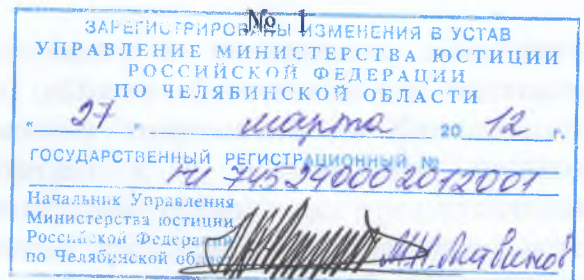 № 1
ЗАРЕГИСТРИРОВАНЫ ИЗМЕНЕНИЯ В УСТАВ
УПРАВЛЕНИЕ МИНИСТЕРСТВА ЮСТИЦИИ
РОССИЙСКОЙ ФЕДЕРАЦИИ
ПО ЧЕЛЯБИНСКОЙ ОБЛАСТИ
" 27 " марта 20 12 г.
ГОСУДАРСТВЕННЫЙ РЕГИСТРАЦИОННЫЙ №
RU 745240002012001
Начальник Управления
Министерства юстиции
Российской Федерации
по Челябинской области